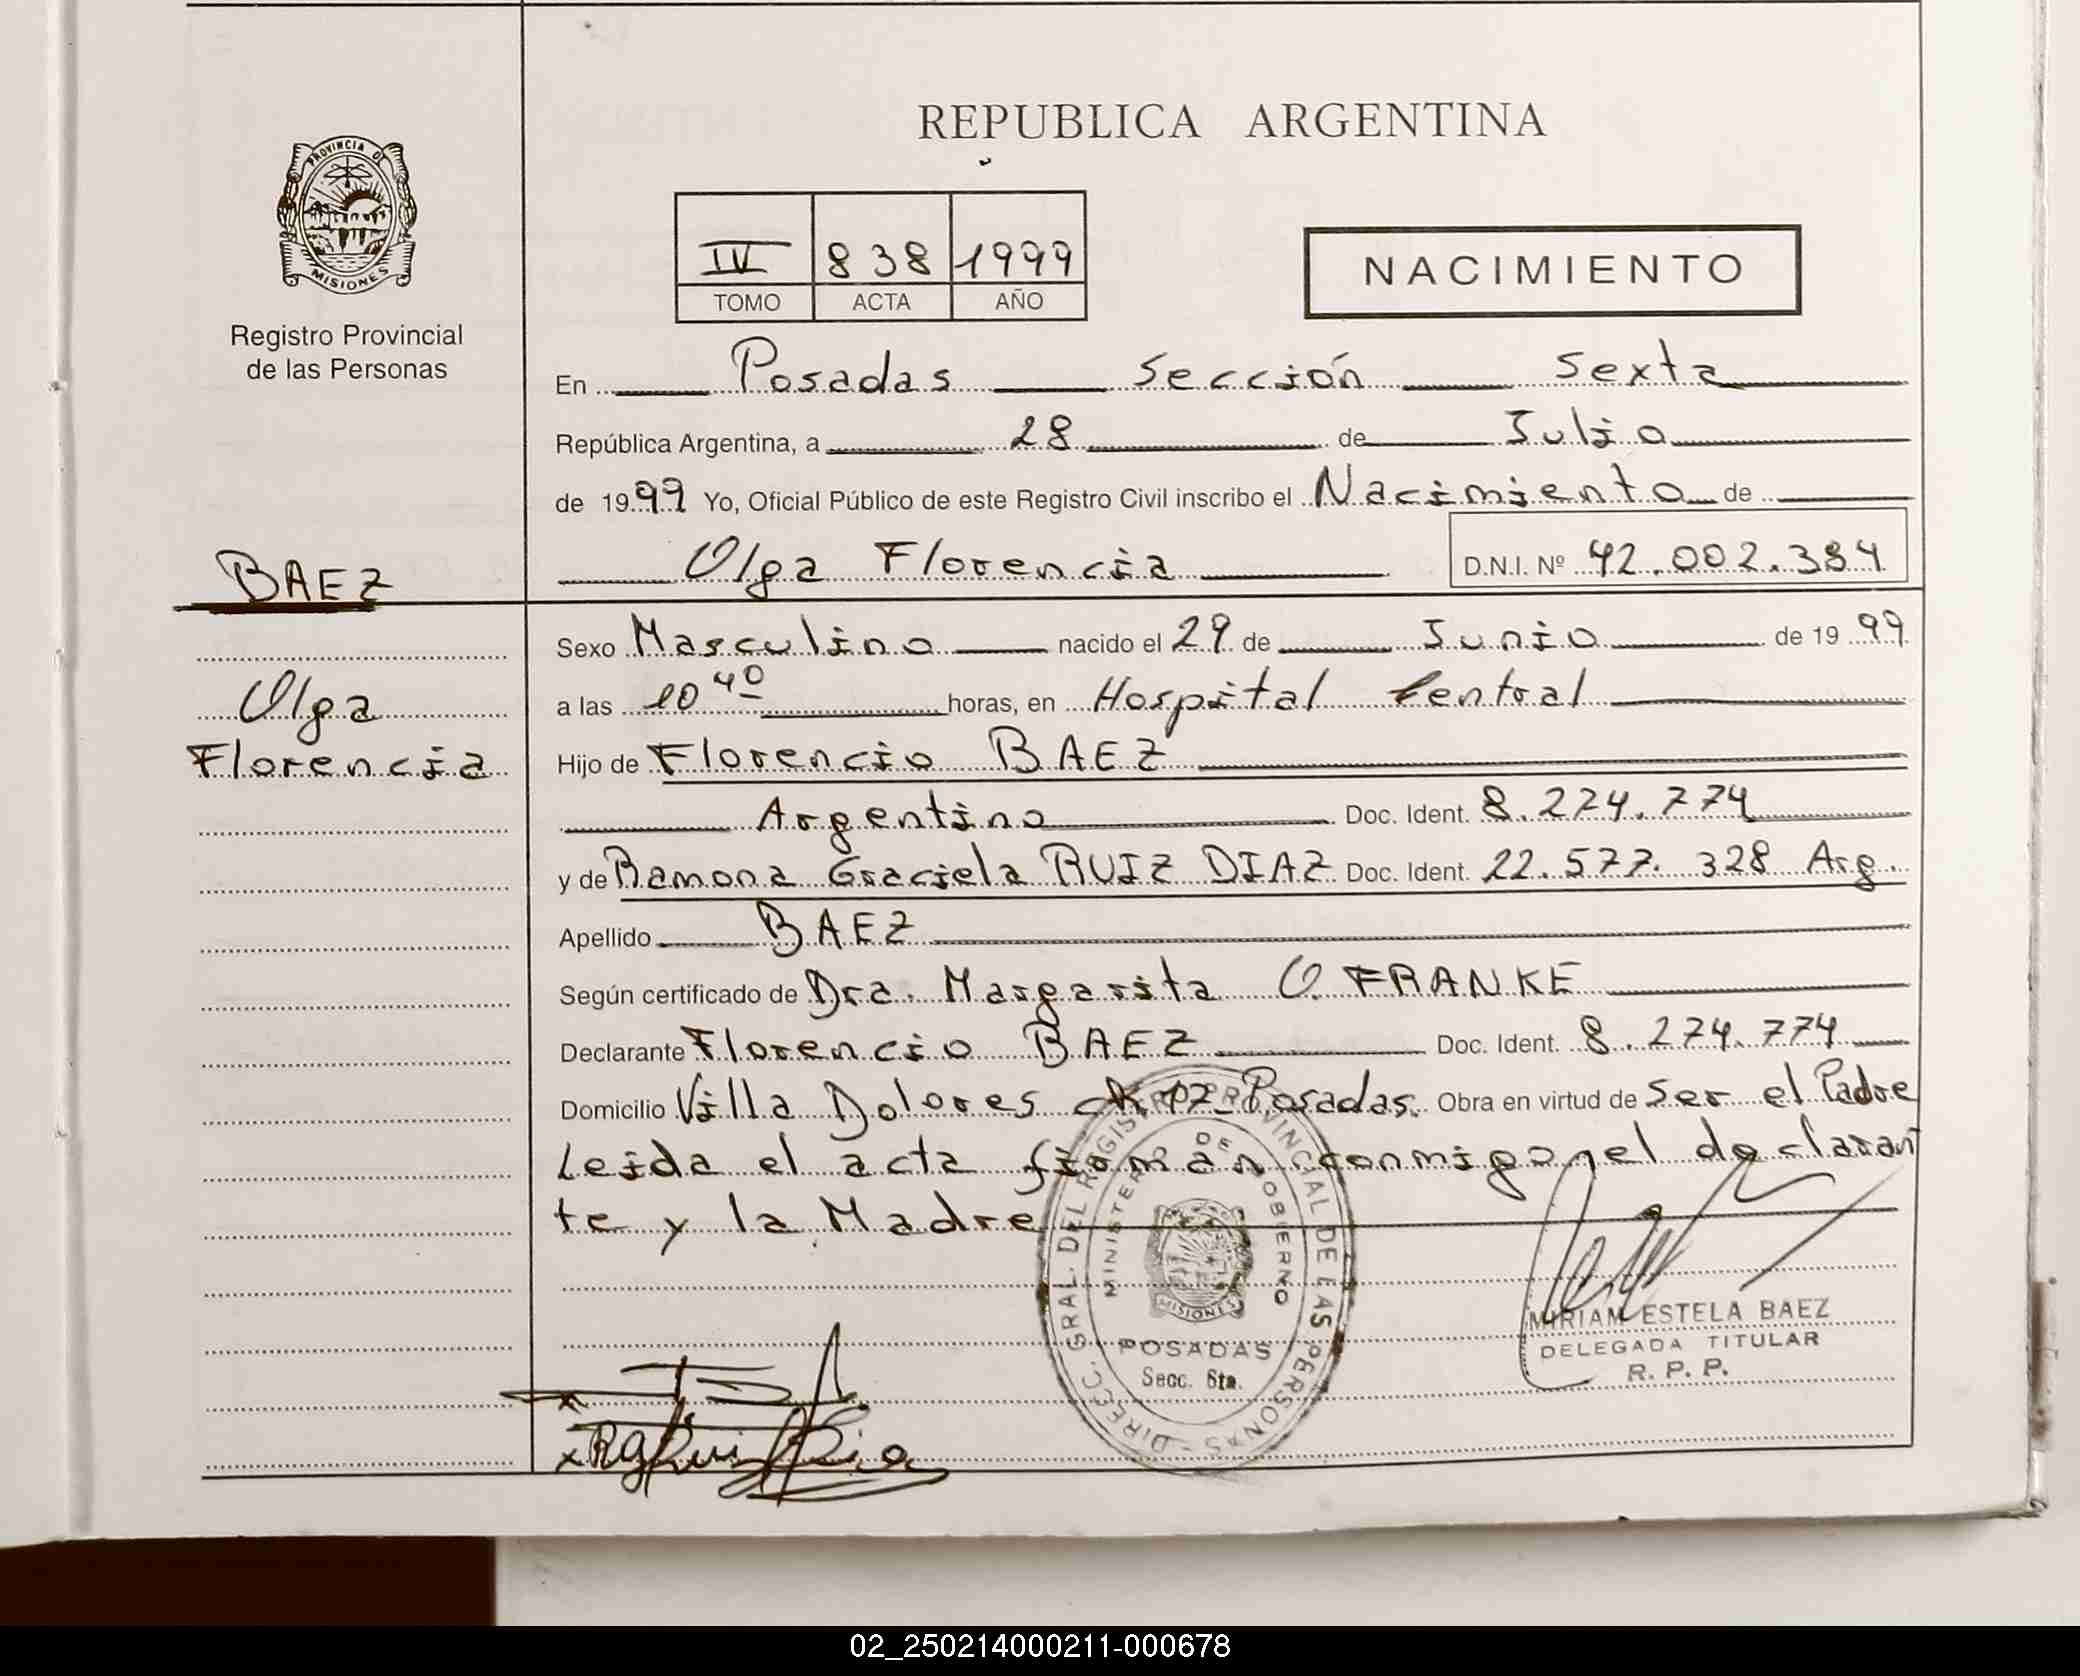 REPUBLICA ARGENTINA
PROVINCIA DE
MISIONES
Registro Provincial
de las Personas
IV 838 1999
TOMO ACTA AÑO
NACIMIENTO
En Posadas Sección Sexta
República Argentina, a 28 de Julio
de 1999 Yo, Oficial Público de este Registro Civil inscribo el Nacimiento de
Olga Florencia D.N.I. Nº 42.002.384
BAEZ
Olga
Florencia
Sexo Masculino nacido el 29 de Junio de 1999
a las 10 40 horas, en Hospital Central
Hijo de Florencio BAEZ
Argentino Doc. Ident. 8.274.774
y de Ramona Graciela RUIZ DIAZ Doc. Ident. 22.577.328 Arg.
Apellido BAEZ
Según certificado de Dra. Margarita O. FRANKE
Declarante Florencio BAEZ Doc. Ident. 8.274.774
Domicilio Villa Dolores 17 Posadas. Obra en virtud de Ser el Padre
Leida el acta firman conmigo el declaran
te y la Madre
DIREC. GRAL. DEL REGISTRO PROVINCIAL DE LAS PERSONAS
MINISTERIO DE GOBIERNO
MISIONES
POSADAS
Secc. 6ta.
MIRIAM ESTELA BAEZ
DELEGADA TITULAR
R. P. P.
x
x RGRuiz Diaz
02_250214000211-000678